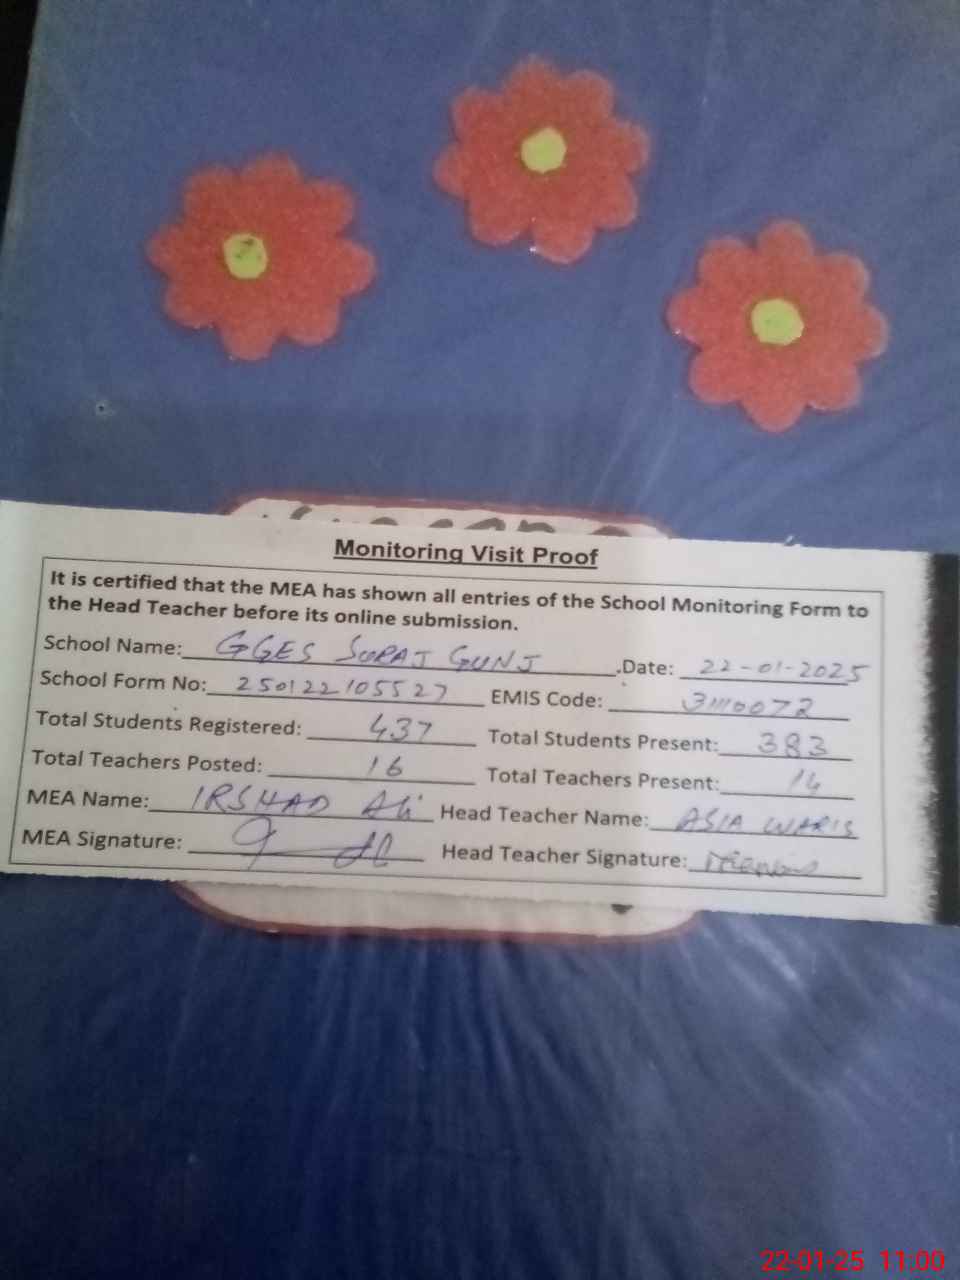 Monitoring Visit Proof
It is certified that the MEA has shown all entries of the School Monitoring Form to
the Head Teacher before its online submission.
School Name: GGES SURAJ GUNJ .Date: 22-01-2025
School Form No: 250122105527 EMIS Code: 31110072
Total Students Registered: 437 Total Students Present: 383
Total Teachers Posted: 16 Total Teachers Present: 14
MEA Name: IRSHAD Ali Head Teacher Name: ASIA WARIS
MEA Signature: Head Teacher Signature:
22-01-25 11:00